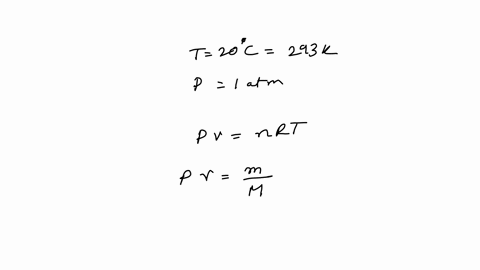 T = 20°C = 293 K
P = 1 atm
P V = nRT
P V = m/M